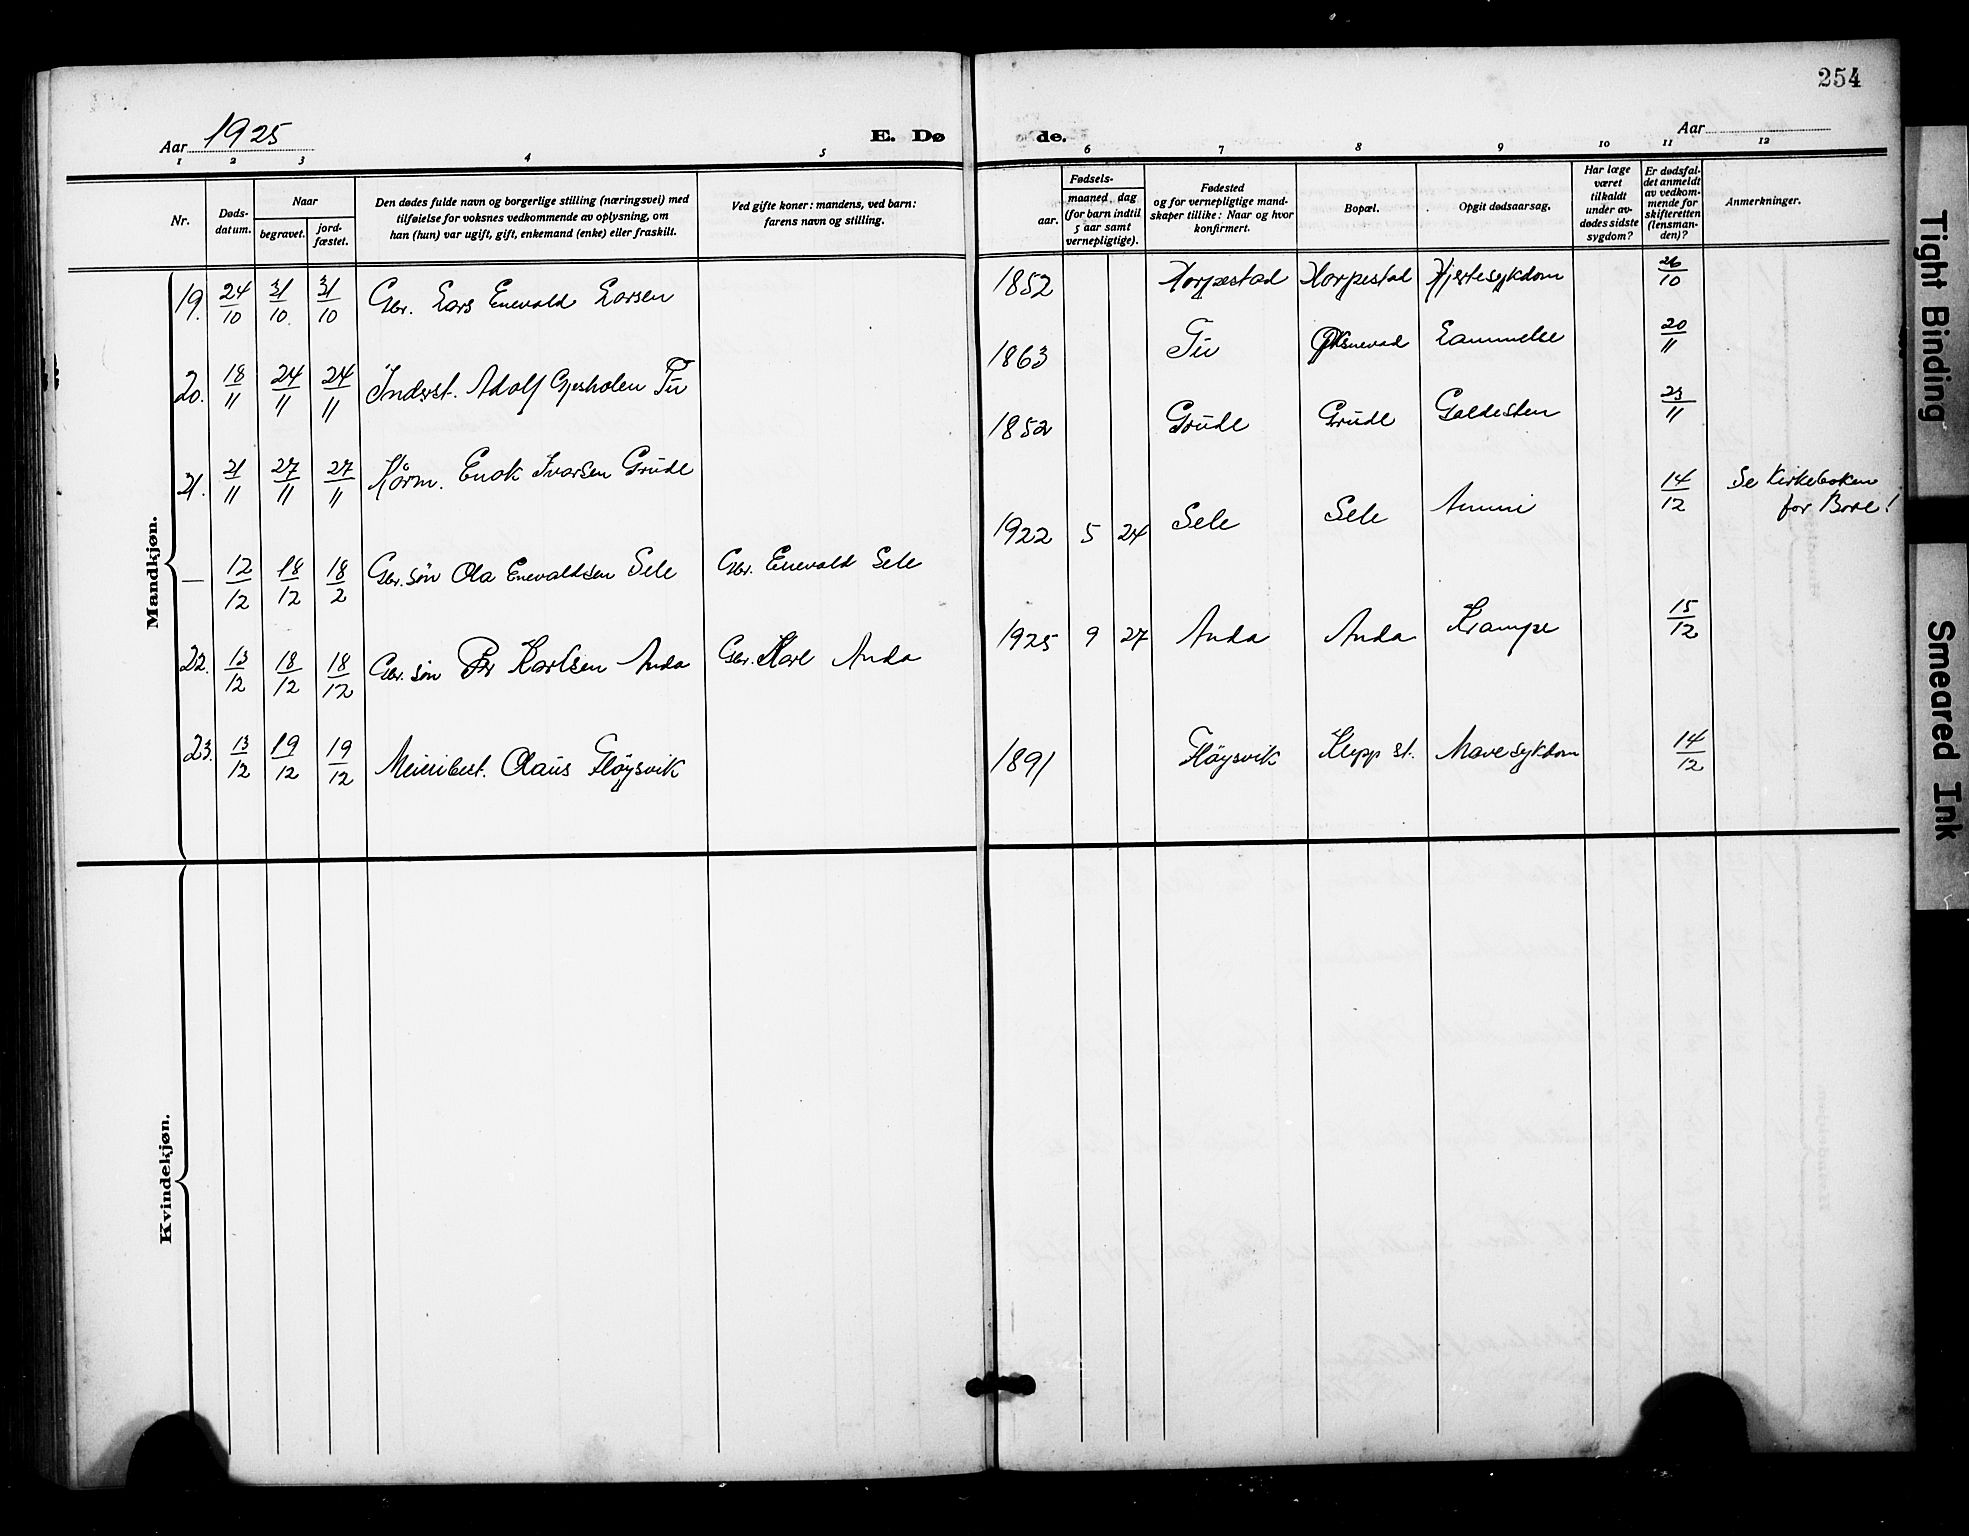 254
Aar 1925
E. Dø de.
Aar
1 2 3 4 5 6 7 8 9 10 11 12
Nr.
Døds-
datum.
Naar
begravet.
jord-
fæstet.
Den dødes fulde navn og borgerlige stilling (næringsvei) med
tilføielse for voksnes vedkommende av oplysning, om
han (hun) var ugift, gift, enkemand (enke) eller fraskilt.
Ved gifte koner: mandens, ved barn:
farens navn og stilling.
Fødsels-
aar.
maaned. dag
(for barn indtil
5 aar samt
vernepligtige).
Fødested
og for vernepligtige mand-
skaper tillike: Naar og hvor
konfirmert.
Bopæl.
Opgit dødsaarsag.
Har læge
været
tilkaldt
under av-
dødes sidste
sygdom?
Er dødsfal-
det anmeldt
av vedkom-
mende for
skifteretten
(lensman-
den)?
Anmerkninger.
Mandkjøn.
19. 24/10 31/10 31/10 Gbr. Lars Enevald Larsen 1852 Horpestad Horpestad Hjertesykdom 26/10
20. 18/11 24/11 24/11 Inderst. Adolf Gjesholen Tu 1863 Tu Lammelse 20/11
21. 21/11 27/11 27/11 Kårm. Enok Ivarsen Grude 1852 Grude Grude Galdesten 23/11
— 12/12 18/12 18/2 Gbr. søn Ola Enevaldsen Sele Gbr. Enevald Sele 1922 5 24 Sele Sele 14/12 Se Kirkeboken
for Bore!
22. 13/12 18/12 18/12 Gbr. søn Per Karlsen Anda Gbr. Karl Anda 1925 9 27 Anda Anda Krampe 15/12
23. 13/12 19/12 19/12 Meieribest. Olaus Fløysvik 1891 Fløysvik Klepp st. Mavesykdom 14/12
Kvindekjøn.
Tight Binding
Smeared Ink